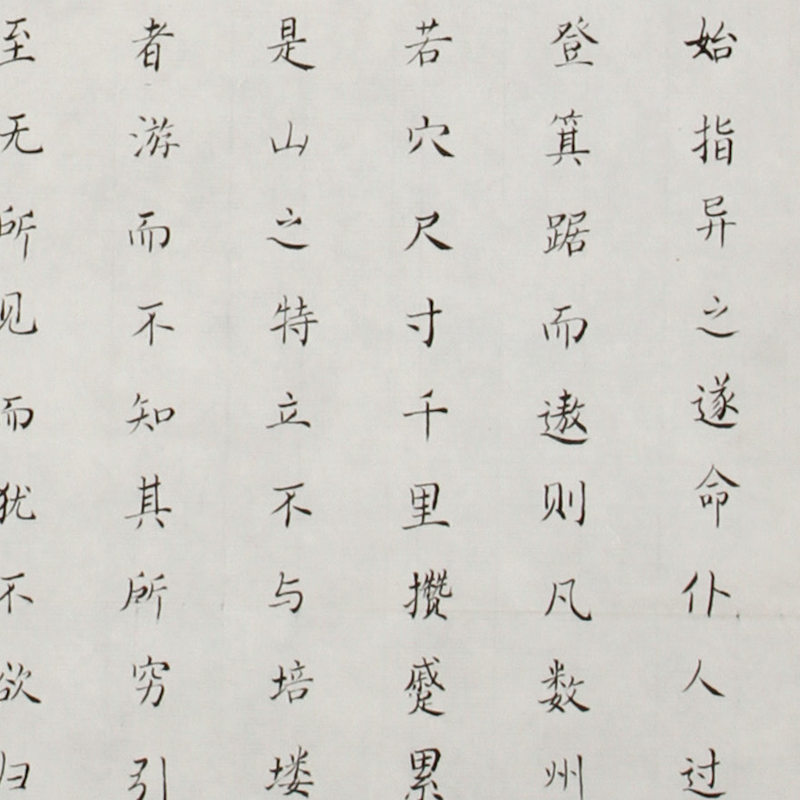 始指异之遂命仆人过
登箕踞而遨则凡数州
若穴尺寸千里攒蹙累
是山之特立不与培塿
者游而不知其所穷引
至无所见而犹不欲归